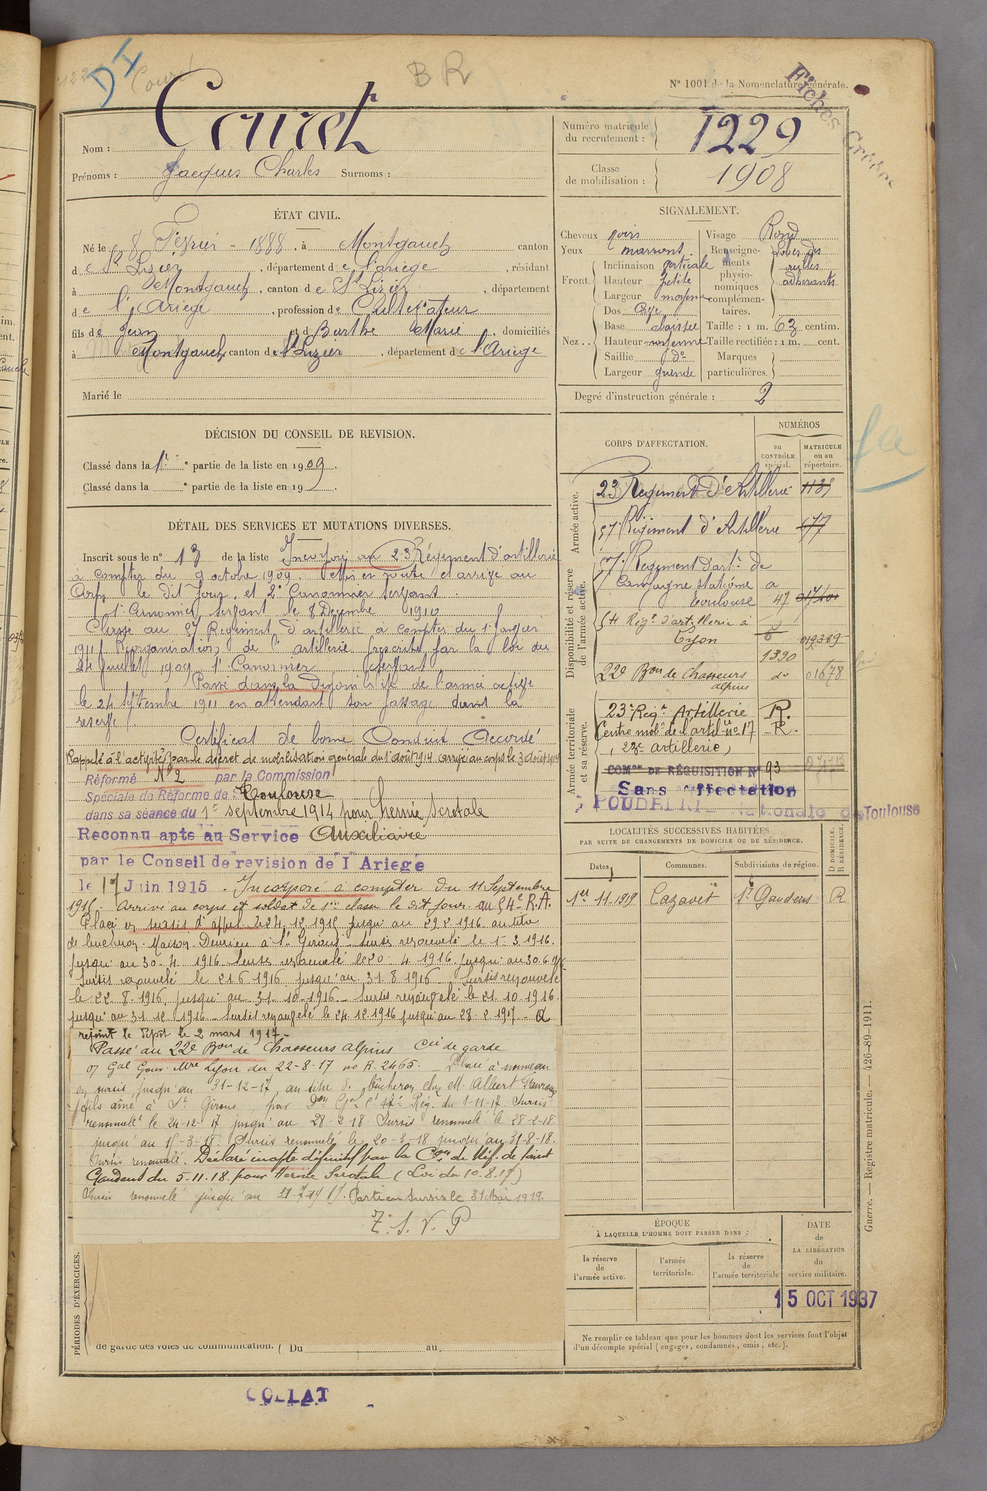 DI
BR
N° 1001 de la Nomenclature générale.
Fiches
Nom : Couret
Prénoms : Jacques Charles Surnoms :
Numéro matricule du recrutement : 1229
Classe de mobilisation : 1908
ÉTAT CIVIL.
Né le 8 Février - 1888, à Montgauch canton
de St Lizier, département de l'ariège, résidant
à Montgauch, canton de St Lizier, département
de l'Ariège, profession de Cultivateur
fils de Jean et d Barthe Marie, domiciliés
à Montgauch canton de St Lizier, département de l'Ariège
Marié le
SIGNALEMENT.
Cheveux noirs
Yeux marrons
Front Inclinaison verticale
Hauteur petite
Largeur moyenne
Nez Dos
Base abaissée
Hauteur moyenne
Saillie do
Largeur grande
Visage Rond
Renseignements physionomiques complémentaires.
Taille : 1 m. 63 centim.
Taille rectifiée : 1 m. cent.
Marques particulières.
Degré d'instruction générale : 2
DÉCISION DU CONSEIL DE REVISION.
Classé dans la 1e partie de la liste en 1909.
Classé dans la e partie de la liste en 19 .
CORPS D'AFFECTATION.
NUMÉROS
au CONTRÔLE spécial.
MATRICULE ou au répertoire.
Armée active.
23 Regiment d'Artillerie
57 Régiment d'Artillerie 177
Disponibilité et réserve de l'armée active.
Regiment d'art. de
Campagne stationé a
Toulouse 47
54 Régt d'artillerie à
Lyon 6
1330
22e Bon de Chasseurs do 01678
alpins
Armée territoriale et sa réserve.
23e Régt Artillerie R.
Centre mobre de l'artillie no 17 R.
(23e artillerie)
COMon DE RÉQUISITION No 93
Sans affectation
POUDRERIE Nationale de Toulouse
DÉTAIL DES SERVICES ET MUTATIONS DIVERSES.
Inscrit sous le n° 13 de la liste Incorporé au 23 Régiment d'artillerie
à compter du 9 octobre 1909. en route et arrivé au
Corps le dit jour, et 2e Canonnier servant.
1er Canonnier servant le 8 Décembre 1910
Classé au 57 Régiment d'artillerie à compter du 1er Janvier
1911 (Réorganisation de l'artillerie prescrite par la loi du
24 Juillet 1909. 1er Canonnier servant
Passé dans la disponibilité de l'armée active
le 24 Septembre 1911 en attendant son passage dans la
reserve
Certificat de bonne Conduite Accordé
Rappelé à l'activité par le décret de mobilisation générale du 1 août 1914. arrivé au corps le 3 août 1914
Réformé N° 2 par la Commission
Spéciale de Réforme de Toulouse
dans sa séance du 1er septembre 1914 pour hernie scrotale
Reconnu apte au Service Auxiliaire
par le Conseil de revision de l'Ariege
le 17 Juin 1915. Incorporé à compter du 11 Septembre
1915. Arrivé au corps et soldat de 1re classe le dit jour. au 54e R.A.
Placé en sursis d'appel le 24.12.1915 jusqu'au 29.2.1916 au titre
de bucheron. Maison à St Girons. Sursis renouvelé le 1-3 1916.
jusqu'au 30-4 1916. Sursis renouvelé le 20 4 1916 jusqu'au 30.6
Sursis renouvelé le 21 6 1916 jusqu'au 31.8 1916. Sursis renouvelé
le 22.8.1916, jusqu'au 31.10.1916. Sursis renouvelé le 21 10 1916.
jusqu'au 31 12 1916. Sursis renouvelé le 24.12.1916 jusqu'au 28.2.1917
rejoint le Dépôt le 2 mars 1917.
Passé au 22e Bon de Chasseurs alpins Cie de garde
Gal Gouv. Mre Lyon du 22-8-17 no R. 2465. Placé à nouveau
en sursis jusqu'au 31-12-17 au titre de bûcheron chez M. Albert
fils aîné à St Girons
renouvelé le 24-12-17 jusqu'au 28 2 18 Sursis renouvelé le 28-2-18
jusqu'au 15-3-18. Sursis renouvelé le 20-3-18 jusqu'au 31-8-18.
Sursis renouvelé. Déclaré inapte définitif par la Con de Réf. de Saint
Gaudens du 5.11.18 pour Hernie Scrotale (Loi du 10.8.17)
Sursis renouvelé jusqu'au Parti en sursis le 31 Mai 1919.
T. S. V. P
LOCALITÉS SUCCESSIVES HABITÉES
PAR SUITE DE CHANGEMENTS DE DOMICILE OU DE RÉSIDENCE.
Dates, Communes. Subdivisions de région. D DOMICILE. R RÉSIDENCE.
1er 11.1919 Cazavet St Gaudens R
ÉPOQUE
À LAQUELLE L'HOMME DOIT PASSER DANS :
la réserve de l'armée active.
l'armée territoriale.
la réserve de l'armée territoriale
DATE de LA LIBÉRATION du service militaire.
15 OCT 1937
Ne remplir ce tableau que pour les hommes dont les services font l'objet
d'un décompte spécial (engagés, condamnés, omis, etc.).
PÉRIODES D'EXERCICES.
de garde des voies de communication. Du au
COLLAT
Guerre. — Registre matricule. — 426-89-1911.